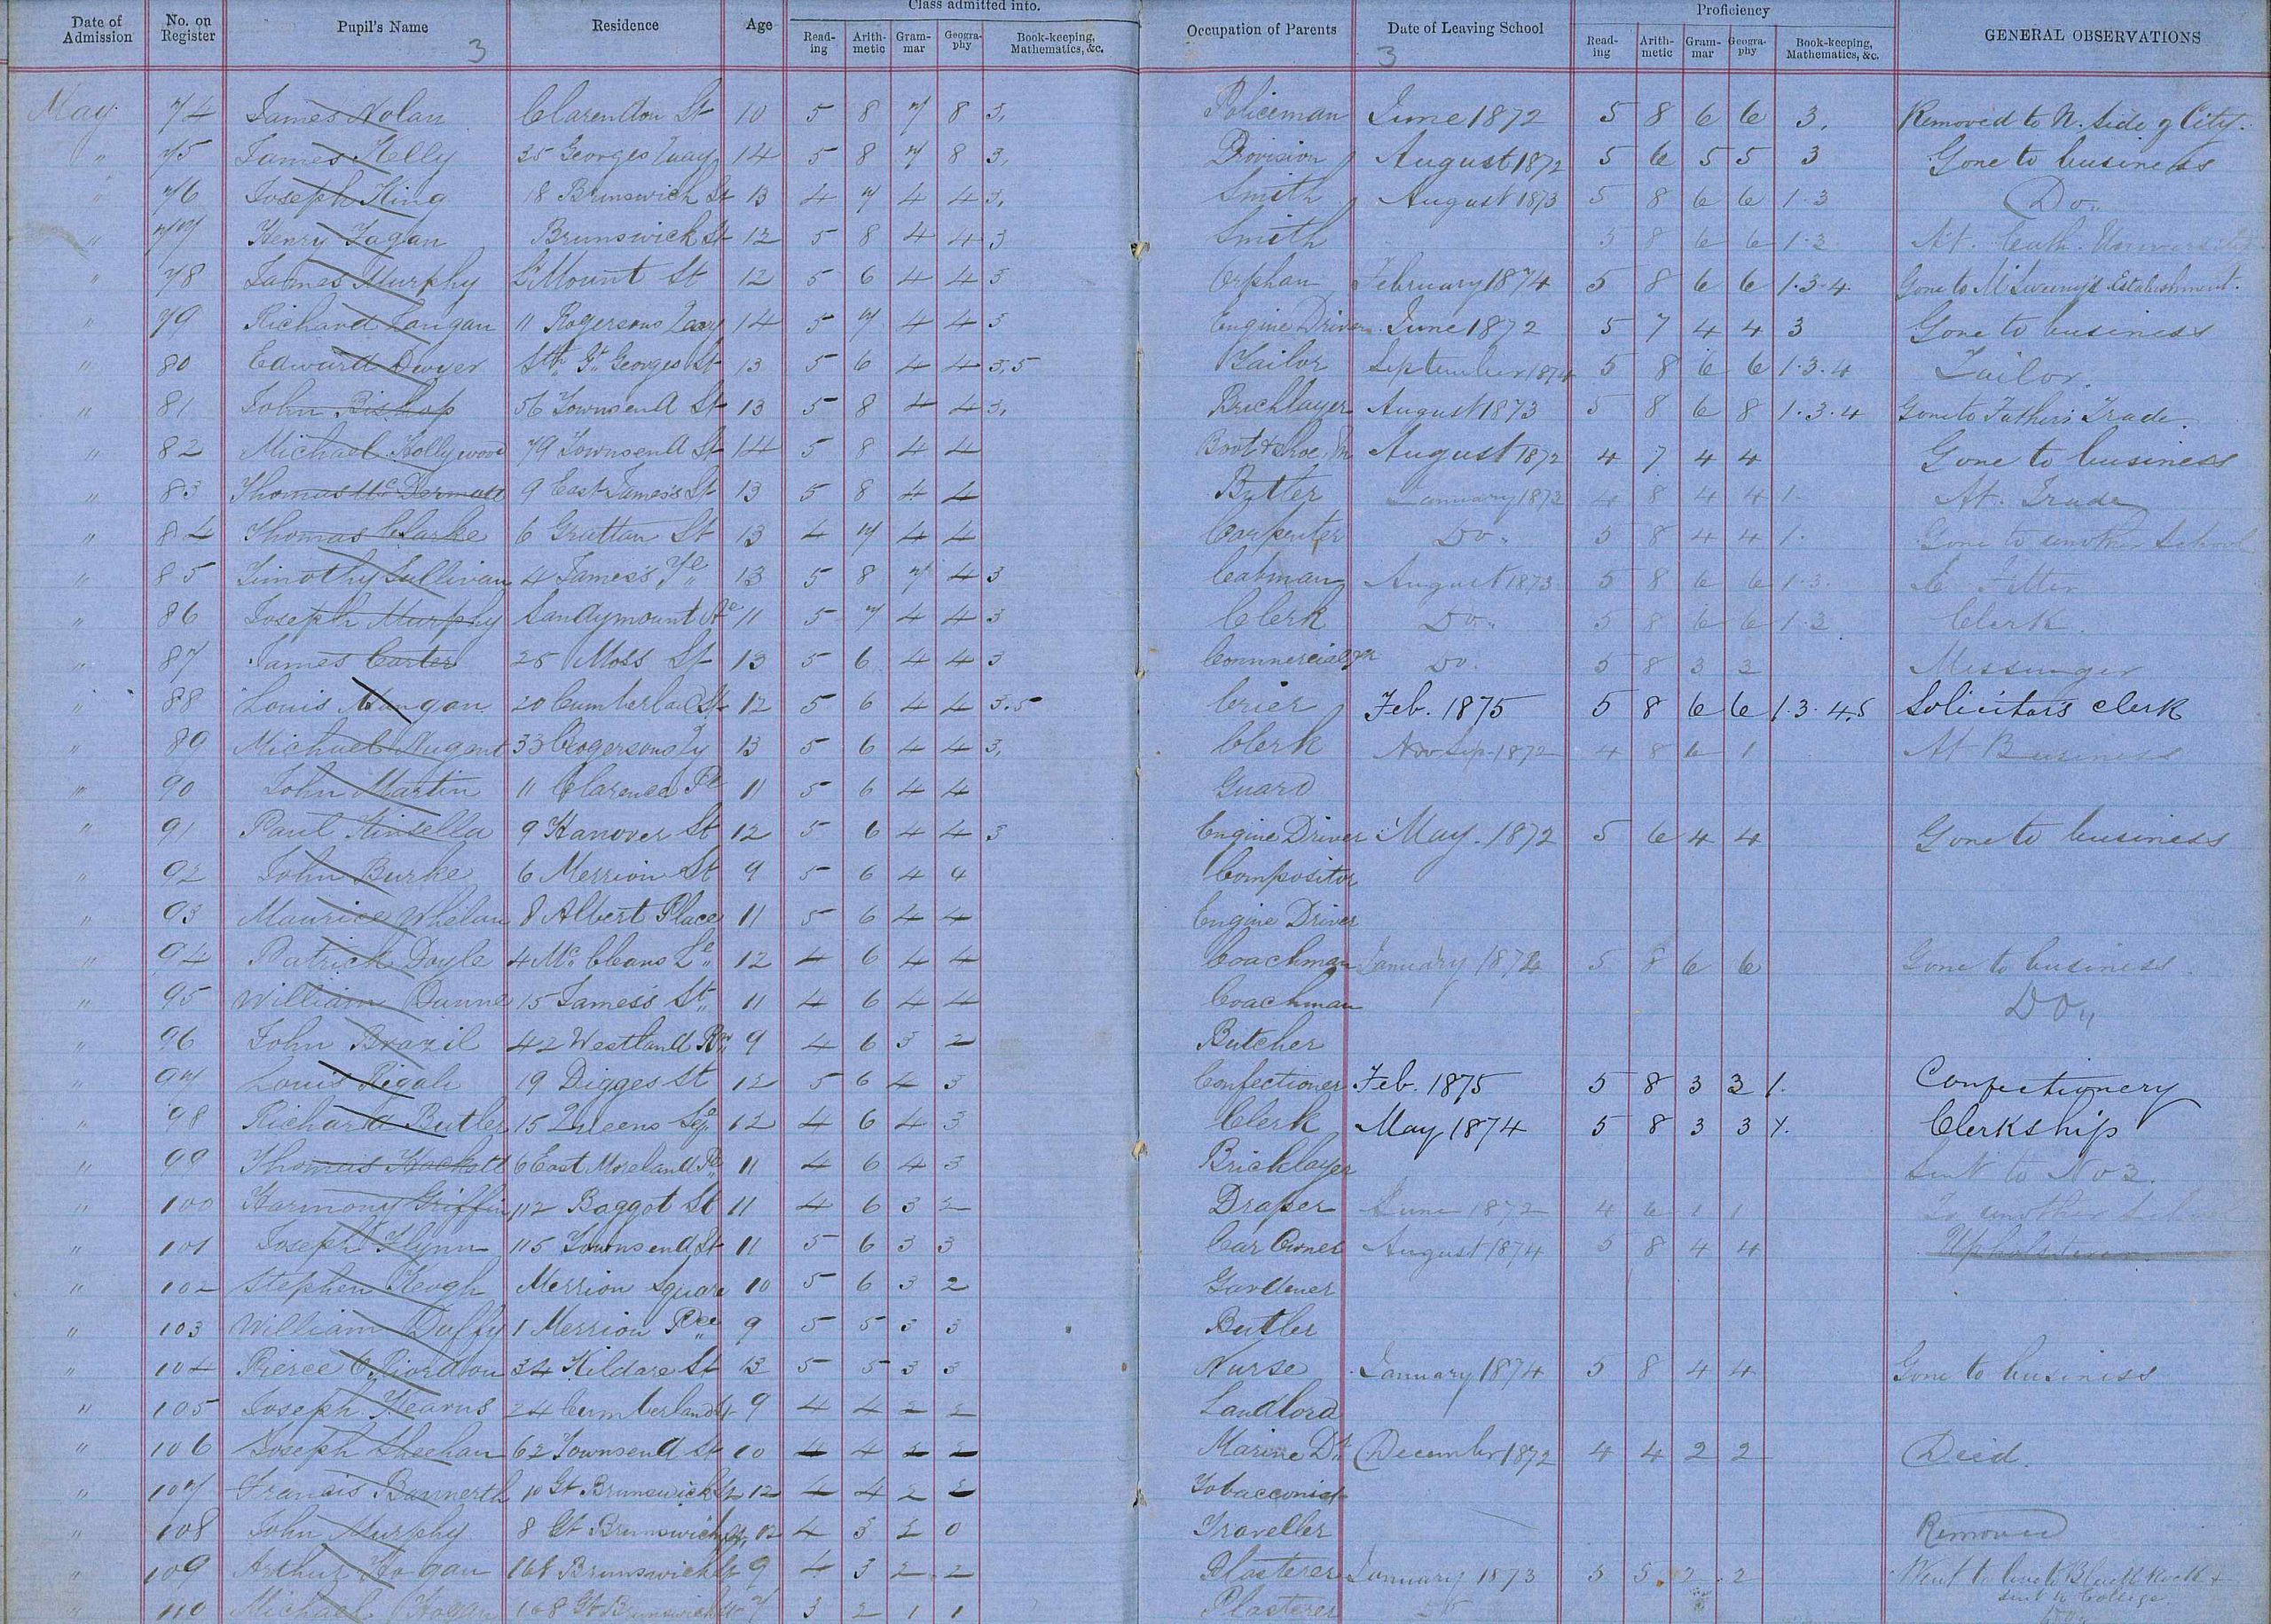 Date of Admission No. on Register Pupil's Name Residence Age Class admitted into. Reading Arithmetic Grammar Geography Book-keeping, Mathematics, &c. Occupation of Parents Date of Leaving School Proficiency Reading Arithmetic Grammar Geography Book-keeping, Mathematics, &c. GENERAL OBSERVATIONS
3 3
May 74 James Nolan Clarendon St 10 5 8 7 8 3, Policeman June 1872 5 8 6 6 3, Removed to N. Side of City.
" 75 James Kelly 35 Georges Quay 14 5 8 7 8 3, Provision August 1872 5 6 5 5 3 Gone to business
" 76 Joseph King 18 Brunswick St 13 4 7 4 4 3, Smith August 1873 5 8 6 6 1.3 Do.,
" 77 Henry Fagan Brunswick St 12 5 8 4 4 3 Smith 5 8 6 6 1.3 At. Cath. University
" 78 James Murphy Mount St 12 5 6 4 4 3 Orphan February 1874 5 8 6 6 1.3.4 Gone to McSweeny's Establishment.
" 79 Richard Langan 11 Rogersons Quay 14 5 7 4 4 3 Engine Driver June 1872 5 7 4 4 3 Gone to business
" 80 Edward Dwyer Sth Gt. Georges St 13 5 6 4 4 3,5 Tailor September 1874 5 8 6 6 1.3.4 Tailor.
" 81 John Bishop 56 Townsend St 13 5 8 4 4 3, Bricklayer August 1873 5 8 6 8 1.3.4 Gone to Father's Trade.
" 82 Michael Hollywood 79 Townsend St 14 5 8 4 4 Boot & Shoe M August 1872 4 7 4 4 Gone to business
" 83 Thomas McDermott 9 East James's St 13 5 8 4 4 Butler January 1873 4 8 4 4 1. At. Trade
" 84 Thomas Clarke 6 Grattan St 13 4 7 4 4 Carpenter Do. 5 8 4 4 1. Gone to another School
" 85 Timothy Sullivan 4 James's 13 5 8 7 4 3 Cabman August 1873 5 8 6 6 1.3. Fitter
" 86 Joseph Murphy Sandymount Ae 11 5 7 4 4 3 Clerk Do. 5 8 6 6 1.3 Clerk.
" 87 James Carter 25 Moss St 13 5 6 4 4 3 Commercial Do. 5 8 3 3 Messenger
" 88 Louis Mangan 20 Cumberland St 12 5 6 4 4 3.5 Crier Feb. 1875 5 8 6 6 1.3.4.5 Solicitors clerk
" 89 Michael Nugent 33 Rogersons Qy 13 5 6 4 4 3, Clerk Sep. 1872 4 8 6 1 At Business
" 90 John Martin 11 Clarence Pl 11 5 6 4 4 Guard
" 91 Paul Kinsella 9 Hanover St 12 5 6 4 4 3 Engine Driver May. 1872 5 6 4 4 Gone to business
" 92 John Burke 6 Merrion St 9 5 6 4 4 Compositor
" 93 Maurice Whelan 8 Albert Place 11 5 6 4 4 Engine Driver
" 94 Patrick Doyle 4 Mc Cleans Le 12 4 6 4 4 Coachman January 1874 5 8 6 6 Gone to business
" 95 William Dunne 15 James's St. 11 4 6 4 4 Coachman Do,,
" 96 John Brazil 42 Westland Row 9 4 6 3 2 Butcher
" 97 Louis Rigali 19 Digges St 12 5 6 4 3 Confectioner Feb. 1875 5 8 3 3 1. Confectionery
" 98 Richard Butler 15 Queens Sq. 12 4 6 4 3 Clerk May 1874 5 8 3 3 1. Clerkship
" 99 Thomas Hackett 6 East Moreland Pl 11 4 6 4 3 Bricklayer Sent to No 3.
" 100 Harmony Griffin 112 Baggot St 11 4 6 3 2 Draper June 1872 4 6 1 1 To another School
" 101 Joseph Flynn 115 Townsend St 11 5 6 3 3 Car Owner August 1874 5 8 4 4 Upholsterer
" 102 Stephen Keogh Merrion Square 10 5 6 3 2 Gardener
" 103 William Duffy 1 Merrion Pce 9 5 5 3 3 Butler
" 104 Pierce O'Riordon 34 Kildare St 13 5 5 3 3 Nurse January 1874 5 8 4 4 Gone to business
" 105 Joseph Kearns 24 Cumberland St 9 4 4 2 2 Landlord
" 106 Joseph Sheehan 62 Townsend St 10 4 4 2 2 Marine Dr. December 1872 4 4 2 2 Died.
" 107 Francis 10 Gt Brunswick St 12 4 4 2 2 Tobacconist
" 108 John Murphy 8 Gt Brunswick St. 12 4 3 2 0 Traveller Removed
" 109 Arthur Hogan 168 Brunswick St 9 4 3 2 2 Plasterer January 1873 5 5 2 2 Went to live to Black Rock &
sent to College
" 110 Michael Hogan 168 Gt Brunswick St 7 3 2 1 1 Plasterer